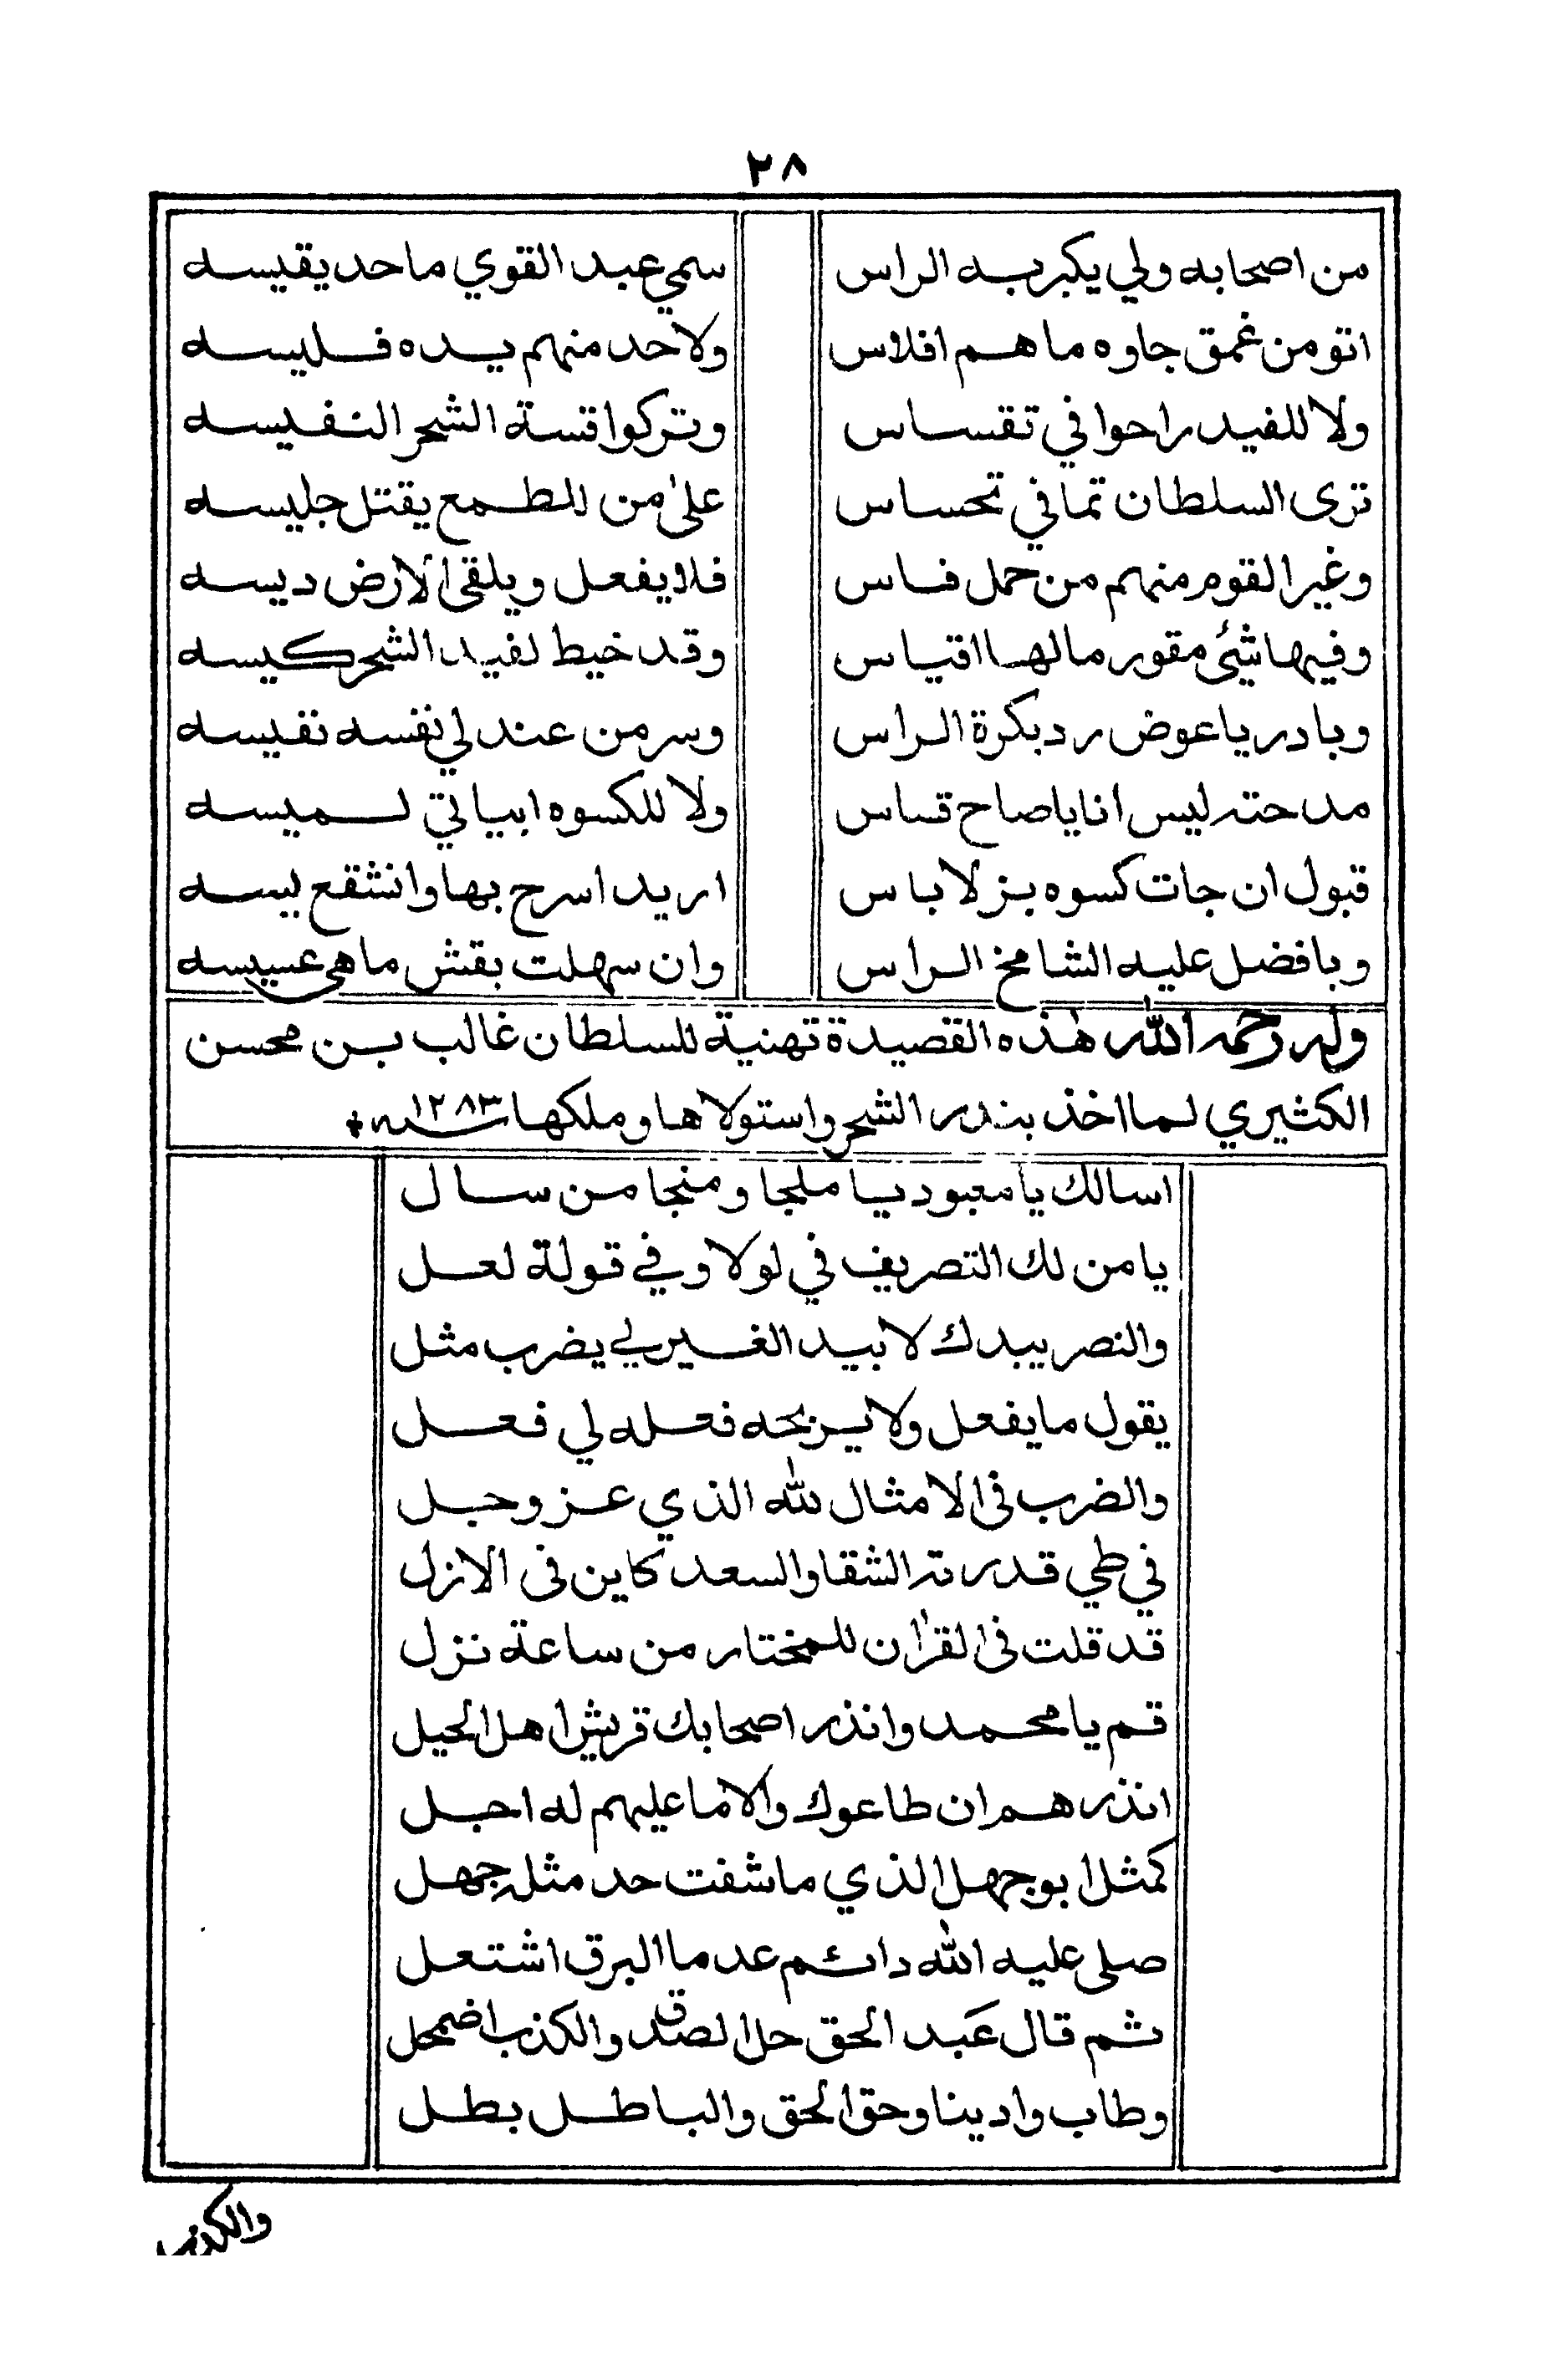 ٢٨
من اصحابه ولي يكبر به الراس سمي عبد القوي ما حد يقيسه
اتو من غمق جاوه ما هم افلاس ولاحد منهم يده فليسه
ولا للفيد راحوا في تقساس وتركوا قسة الشحر النفيسه
ترى السلطان تمافي تحساس على من للطمع يقتل جليسه
وغير القوم منهم من حمل فاس فلا يفعل ويلقى الارض ديسه
وفيها شئ مقور ما لها اقياس وقد خيط لفيد الشحر كيسه
وبادر يا عوض رد بكرة الراس وسر من عند لي نفسه نفيسه
مدحته ليس انا يا صاح قساس ولا للكسوه ابياتي لميسه
قبول ان جات كسوه بز لا باس اريد اسرح بها وانشقع بيسه
وبافضل عليه الشامخ الراس وان سهلت بقش ما هي عسيسه
وله رحمه الله هذه القصيدة تهنية للسلطان غالب بن محسن
الكثيري لما اخذ بندر الشحر واستولاها وملكها سنه ١٢٨٣
اسالك يا معبود يا ملجا ومنجا من سال
يا من لك التصريف في لولا وفي قولة لعل
والنصر بيدك لا بيد الغير لي يضرب مثل
يقول ما يفعل ولا يربحه فعله لي فعل
والضرب في الامثال لله الذي عز وجل
في طي قدرته الشقا والسعد كاين في الازل
قد قلت في القران للمختار من ساعة نزل
قم يا محمد وانذر اصحابك قريش اهل الحيل
انذرهم ان طاعوك والا ما عليهم له اجل
كمثل ابو جهل الذي ما شفت حد مثله جهل
صلى عليه الله دائم عد ما البرق اشتعل
ثم قال عَبد الحق حل الصدق والكذب اضمحل
وطاب وادينا وحق الحق والباطل بطل
والكذب